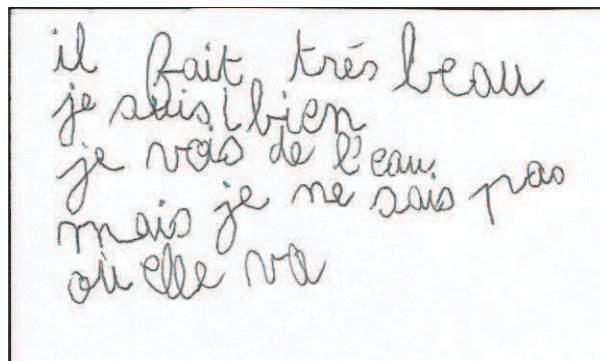 il fait trés beau
je suis bien
je vois de l'eau
mais je ne sais pas
où elle va